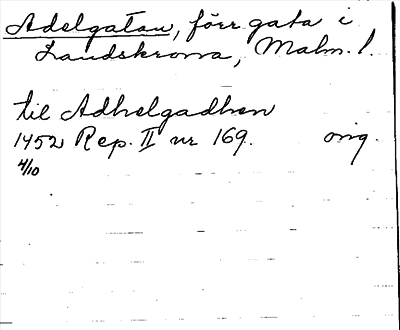 Adelgatan, förr gata i
Landskrona, Malm. l.
til Adhelgadhen
1452 Rep. II nr 169. orig.
4/10